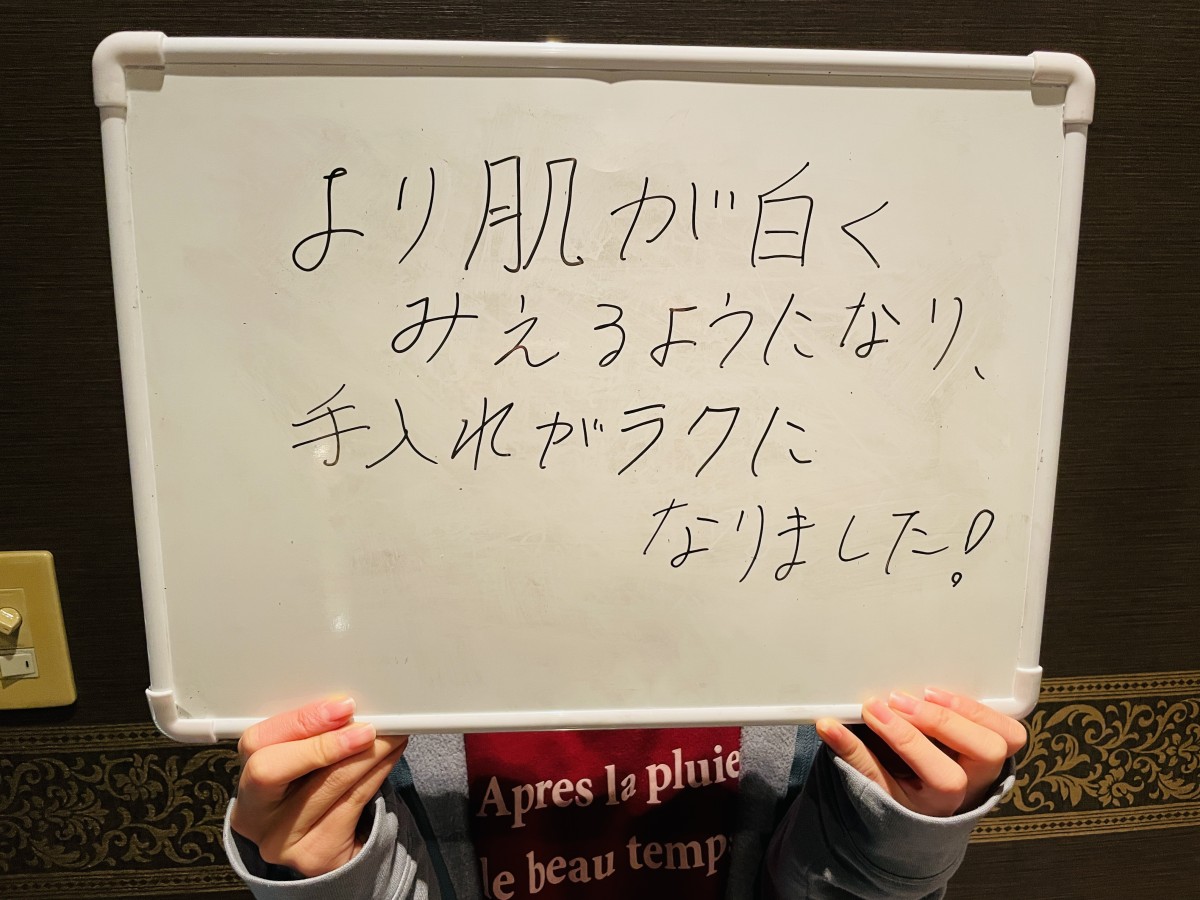 より肌が白く
みえるようになり、
手入れがラクに
なりました!
Apres la pluie
le beau temps